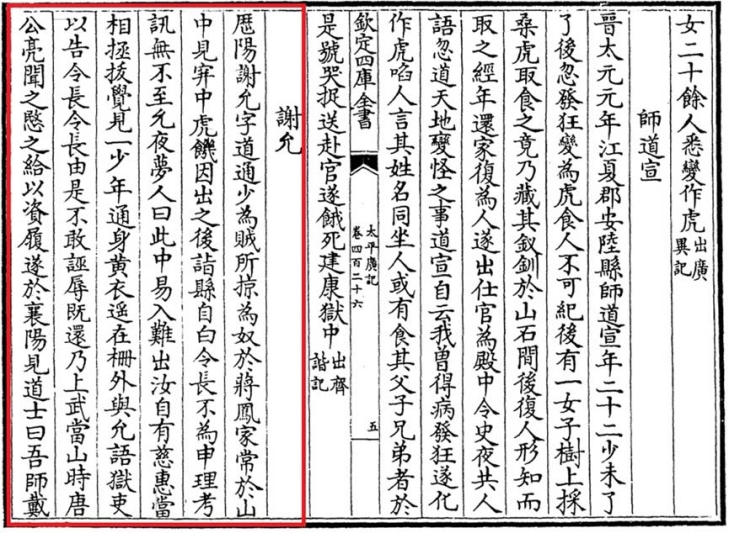 女二十餘人悉變作虎出廣異記
師道宣
晉太元元年江夏郡安陸縣師道宣年二十二少未了
了後忽發狂變為虎食人不可紀後有一女子樹上採
桑虎取食之竟乃藏其釵釧於山石間後復人形知而
取之經年還家復為人遂出仕官為殿中令史夜共人
語忽道天地變怪之事道宣自云我曾得病發狂遂化
作虎啗人言其姓名同坐人或有食其父子兄弟者於
是號哭捉送赴官遂餓死建康獄中出齊諧記
欽定四庫全書
太平廣記
卷四百二十六
五
謝允
歴陽謝允字道通少為賊所掠為奴於蔣鳳家常於山
中見穽中虎饑因出之後詣縣自白令長不為申理考
訊無不至允夜夢人曰此中易入難出汝自有慈惠當
相拯拔覺見一少年通身黄衣遥在柵外與允語獄吏
以告令長令長由是不敢誣辱既還乃上武當山時唐
公亮聞之愍之給以資履遂於襄陽見道士曰吾師戴